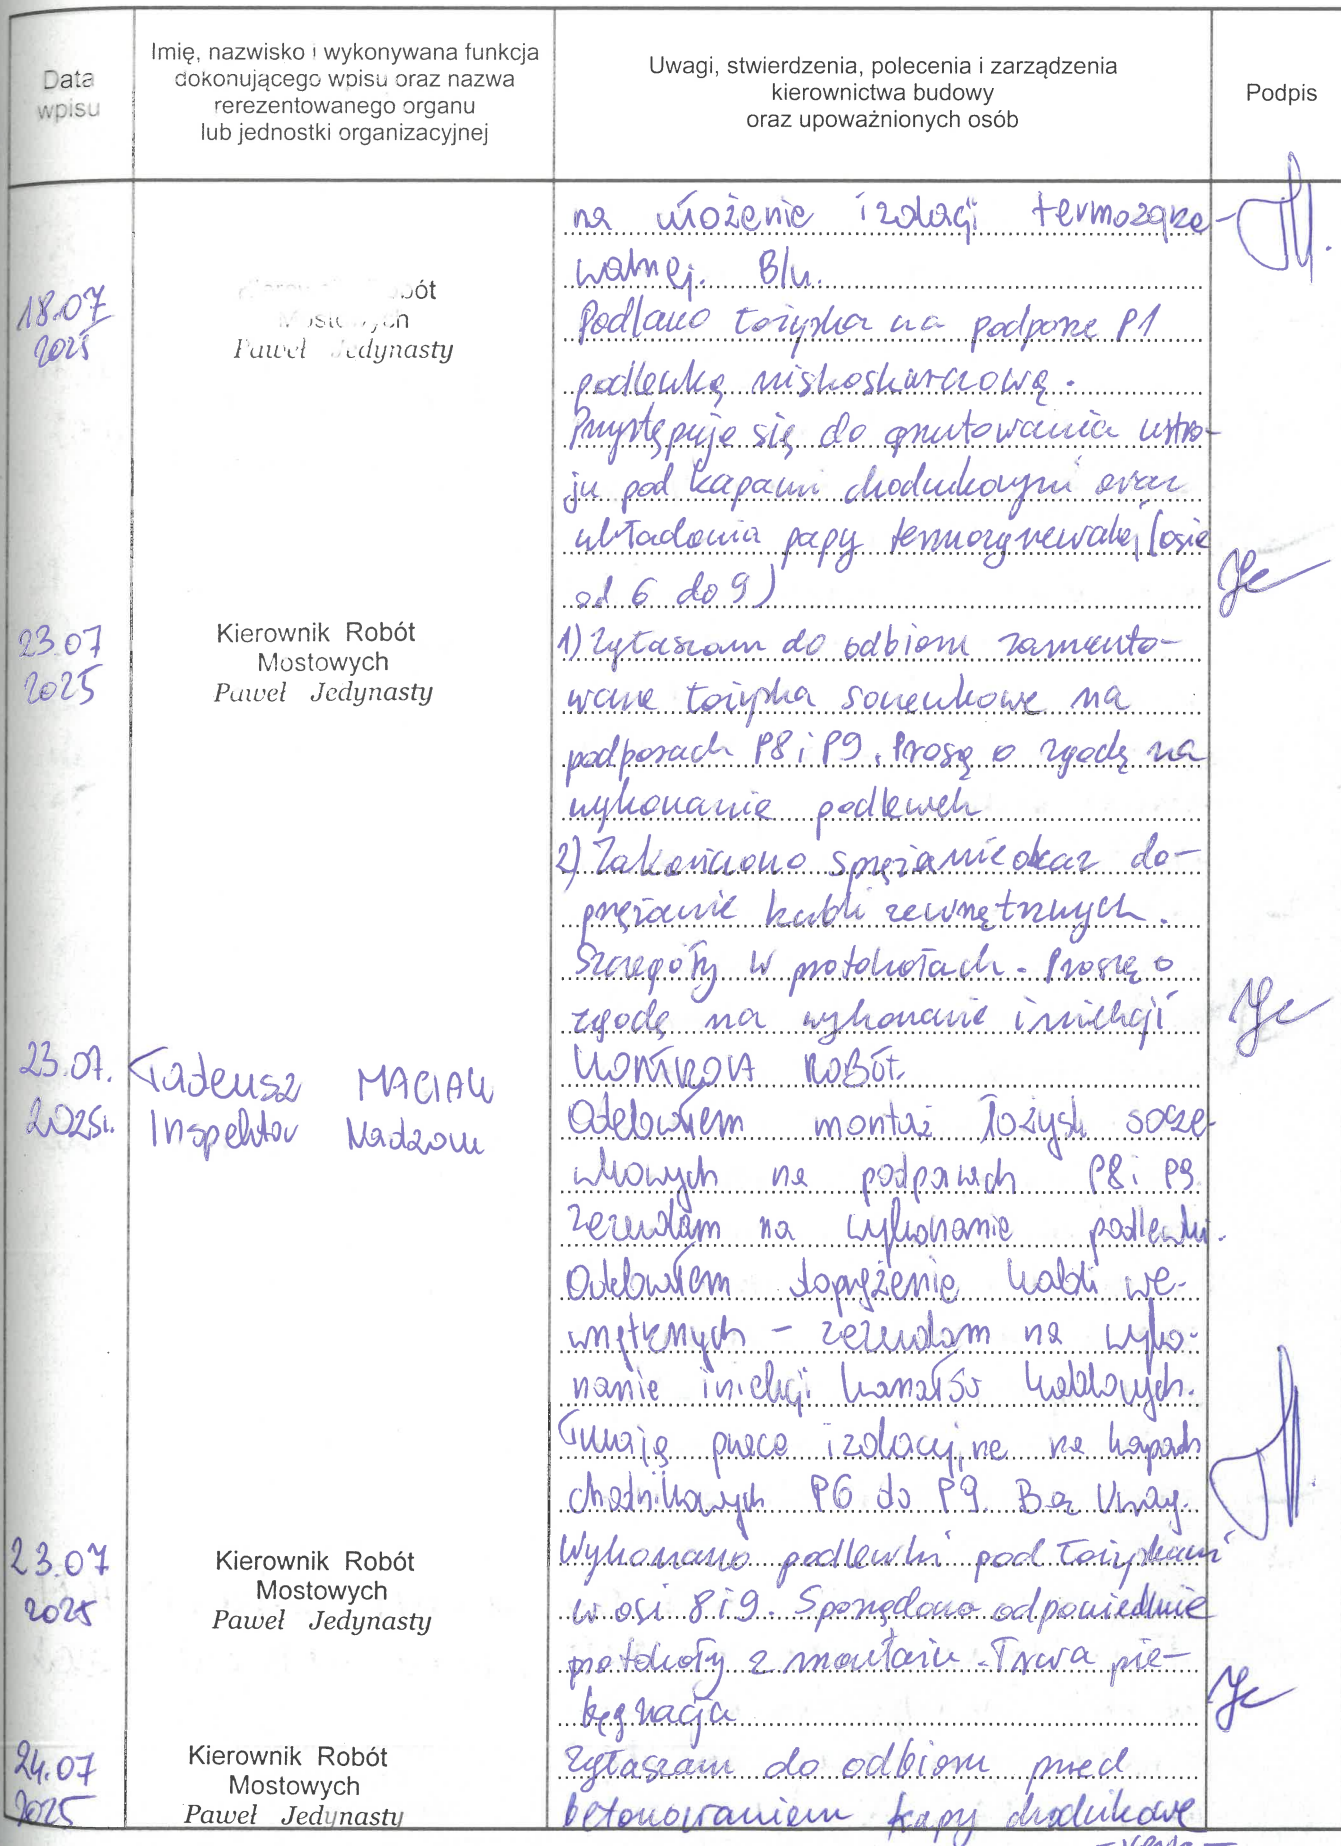 Data wpisu
Imię, nazwisko i wykonywana funkcja
dokonującego wpisu oraz nazwa
rerezentowanego organu
lub jednostki organizacyjnej
Uwagi, stwierdzenia, polecenia i zarządzenia
kierownictwa budowy
oraz upoważnionych osób
Podpis
na ułożenie izolacji termozgrze-
walnej. B/u.
18.07
2025
Robót
Mostowych
Paweł Jedynasty
Podlano łożyska na podporze P1
podlewką niskoskurczową.
Przystępuje się do gruntowania ustro-
ju pod kapami chodnikowymi oraz
układania papy termozgrzewalnej (osie
od 6 do 9)
23.07
2025
Kierownik Robót
Mostowych
Paweł Jedynasty
1) Zgłaszam do odbioru zamonto-
wane łożyska soczewkowe na
podporach P8 i P9. Proszę o zgodę na
wykonanie podlewek
2) Zakończono sprężanie oraz do-
prężanie kabli zewnętrznych.
Szczegóły w protokołach. Proszę o
zgodę na wykonanie iniekcji
23.07.
2025r.
Tadeusz MACIAK
Inspektor Nadzoru
KONTROLA ROBÓT.
Odebrałem montaż łożysk socze-
wkowych na podporach P8 i P9.
Zezwalam na wykonanie podlewki.
Odebrałem doprężenie kabli we-
wnętrznych - zezwalam na wyko-
nanie iniekcji kanałów kablowych.
Trwają prace izolacyjne na kapach
chodnikowych P6 do P9. Bez Uwag.
23.07
2025
Kierownik Robót
Mostowych
Paweł Jedynasty
Wykonano podlewki pod łożyskami
w osi 8 i 9. Sporządzono odpowiednie
protokoły z montażu. Trwa pie-
lęgnacja
24.07
2025
Kierownik Robót
Mostowych
Paweł Jedynasty
Zgłaszam do odbioru przed
betonowaniem kapy chodnikowe